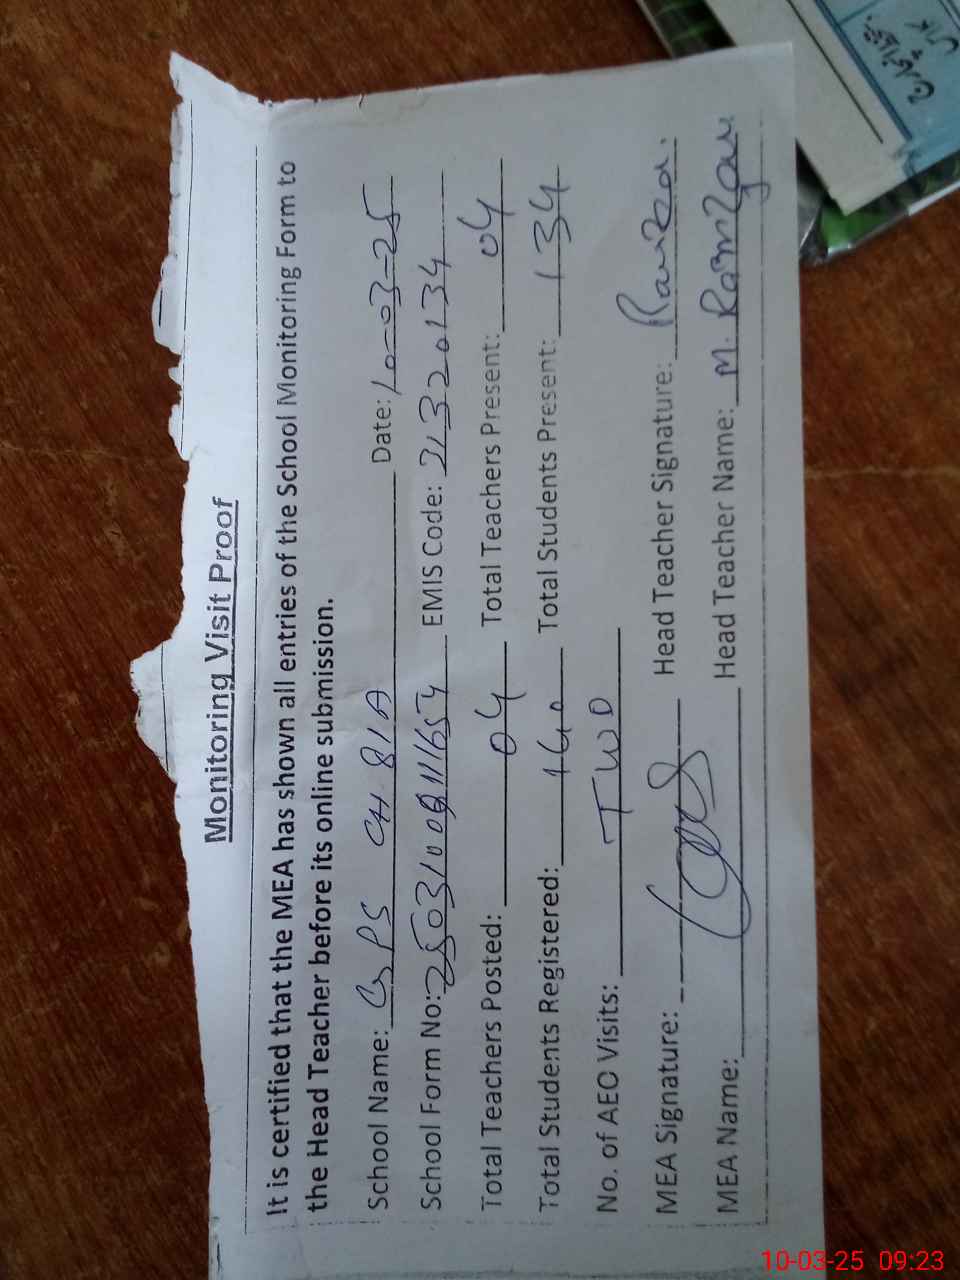 Monitoring Visit Proof
It is certified that the MEA has shown all entries of the School Monitoring Form to
the Head Teacher before its online submission.
School Name: GPS CH. 81A Date: 10-03-25
School Form No: EMIS Code: 31320134
Total Teachers Posted: 04 Total Teachers Present: 04
Total Students Registered: 140 Total Students Present: 134
No. of AEO Visits: TWO
MEA Signature: Head Teacher Signature:
MEA Name: Head Teacher Name: M. Ramzan
10-03-25 09:23